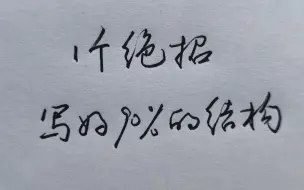 1个绝招
写好90%的结构